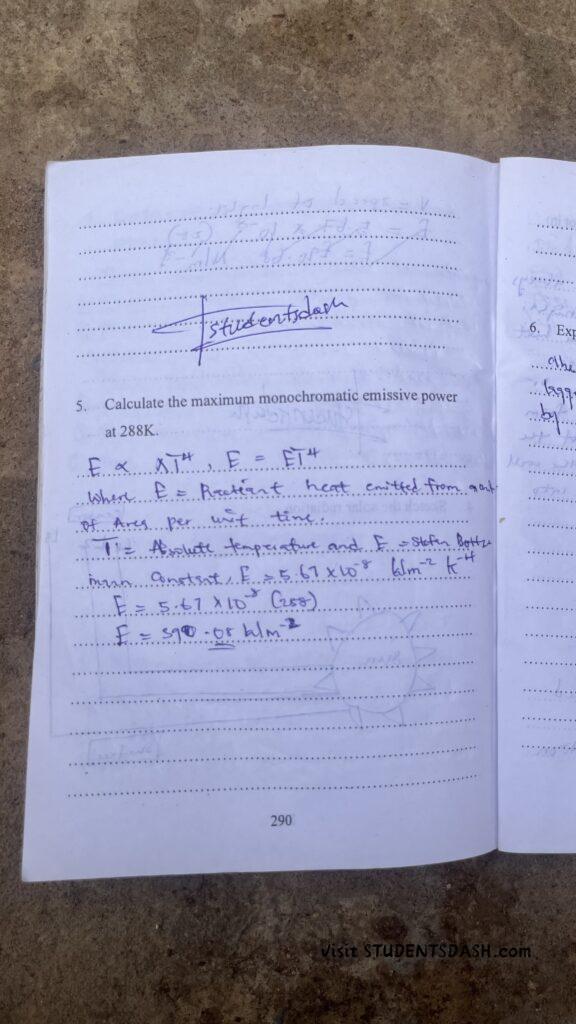 studentsdash
5. Calculate the maximum monochromatic emissive power
at 288K.
E ∝ XT⁴, E = ET⁴
Where E = Radiant heat emitted from a unit
of Area per unit time.
T = Absolute temperature and E = Stefan Boltz
mann Constant, E = 5.67 × 10⁻⁸ W/m⁻² K⁻⁴
E = 5.67 × 10⁻⁸ (288)
E = 390.08 W/m⁻²
290
6. Exp
the
by
visit STUDENTSDASH.com